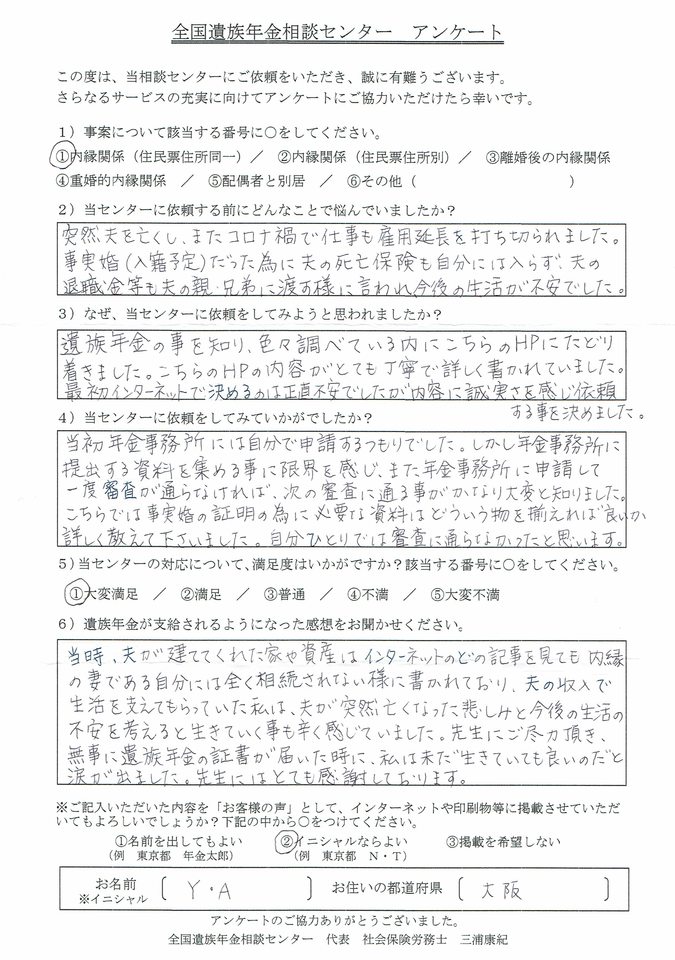 全国遺族年金相談センター　アンケート
この度は、当相談センターにご依頼をいただき、誠に有難うございます。
さらなるサービスの充実に向けてアンケートにご協力いただけたら幸いです。
1）事案について該当する番号に○をしてください。
①内縁関係（住民票住所同一）／　②内縁関係（住民票住所別）／　③離婚後の内縁関係
④重婚的内縁関係　／　⑤配偶者と別居　／　⑥その他（　　　　　　　　　　）
2）当センターに依頼する前にどんなことで悩んでいましたか？
突然夫を亡くし、またコロナ禍で仕事も雇用延長を打ち切られました。
事実婚(入籍予定)だった為に夫の死亡保険も自分には入らず、夫の
退職金等も夫の親・兄弟に渡す様に言われ、今後の生活が不安でした。
3）なぜ、当センターに依頼をしてみようと思われましたか？
遺族年金の事を知り、色々調べている内にこちらのHPにたどり
着きました。こちらのHPの内容がとても丁寧で詳しく書かれていました。
最初インターネットで決めるのは正直不安でしたが内容に誠実さを感じ依頼
する事を決めました。
4）当センターに依頼をしてみていかがでしたか？
当初年金事務所には自分で申請するつもりでした。しかし年金事務所に
提出する資料を集める事に限界を感じ、また年金事務所に申請して
一度審査が通らなければ、次の審査に通る事がかなり大変と知りました。
こちらでは事実婚の証明の為に必要な資料はどういう物を揃えれば良いか
詳しく教えて下さいました。自分ひとりでは審査に通らなかったと思います。
5）当センターの対応について、満足度はいかがですか？該当する番号に○をしてください。
①大変満足　／　②満足　／　③普通　／　④不満　／　⑤大変不満
6）遺族年金が支給されるようになった感想をお聞かせください。
当時、夫が建ててくれた家や資産はインターネットのどの記事を見ても内縁
の妻である自分には全く相続されない様に書かれており、夫の収入で
生活を支えてもらっていた私は、夫が突然亡くなった悲しみと今後の生活の
不安を考えると生きていく事も辛く感じていました。先生にご尽力頂き、
無事に遺族年金の証書が届いた時に、私は未だ生きていても良いのだと
涙が出ました。先生にはとても感謝しております。
※ご記入いただいた内容を「お客様の声」として、インターネットや印刷物等に掲載させていただ
いてもよろしいでしょうか？下記の中から○をつけてください。
①名前を出してもよい　　②イニシャルならよい　　③掲載を希望しない
（例　東京都　年金太郎）　　（例　東京都　N・T）
お名前　〔　Y・A　〕　お住いの都道府県　〔　大阪　〕
※イニシャル
アンケートのご協力ありがとうございました。
全国遺族年金相談センター　代表　社会保険労務士　三浦康紀